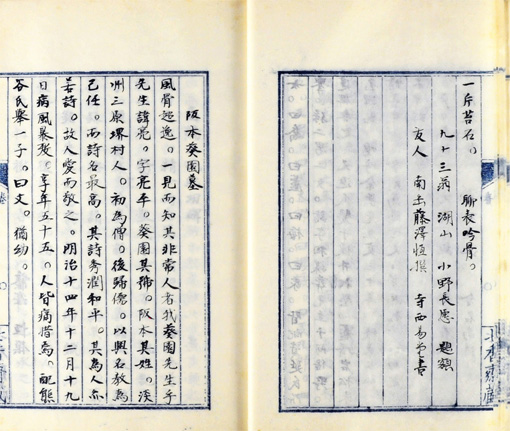 一片苔石。 聊表吟骨。
九十三翁 湖山 小野長愿 題額
友人 南岳藤澤恒撰 寺西易堂書
阪本葵園墓
風骨超逸。一見而知其非常人者。我葵園先生乎。
先生諱亮。字亮平。葵園其號。阪本其姓。淡
州三原堺村人。初為僧。後歸儒。以興名教為
己任。而詩名最高。其詩秀潤和平。其為人亦
若詩。故人愛而敬之。明治十四年十二月十九
日病風暴發。享年五十五。人皆痛惜焉。配熊
谷氏舉一子。曰文。猶幼。